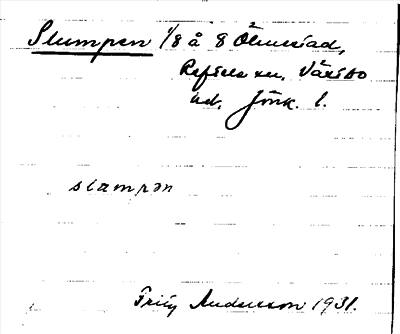 Slumpen 1/8 å 8 Ölmestad,
Reftele sn, Västbo
hd, Jönk. l.
slampən
Fritz Anderson 1931.